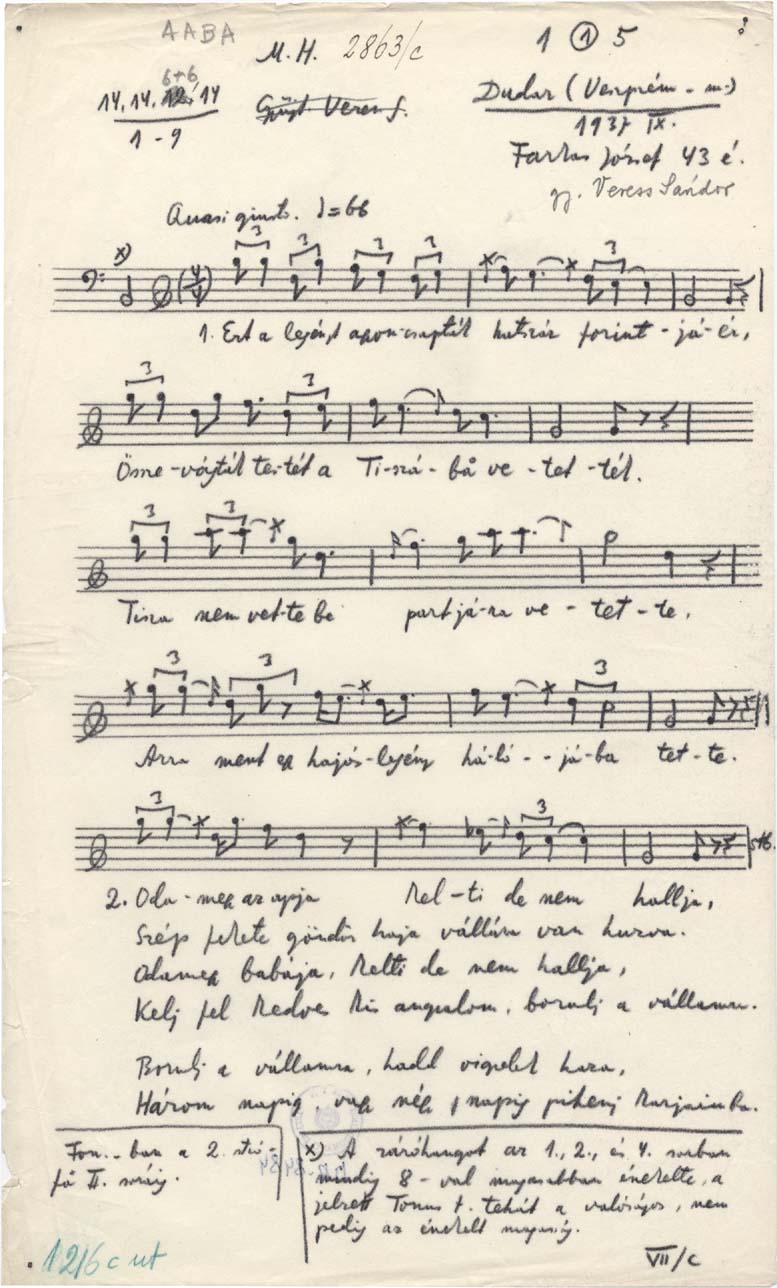 AABA
M. H. 2863/c
1 ① 5
6+6
14, 14, 12, 14
1 - 9
Gyűjt. Veress S.
Dudar (Veszprém - m.)
1937 IX.
Farkas József 43 é.
gy. Veress Sándor
Quasi giusto. = 66
x)
3 3 3 3 3
1. Ezt a legényt agyoncsaptál hatszáz forint - já - ér,
3 3
Össze - vágtál testét a Ti - szá - bå ve - tet - tél.
3 3
Tisza nem vet - te be part - já - ra ve - tet - te,
3 3 3
Arra ment egy hajós - legény há - ló - - já - ba tet - te.
3 3
stb.
2. Oda - megy az apja Kel - ti de nem hallja,
Szép fekete göndör haja vállára van huzva.
Odamegy babája, Kelti de nem hallja,
Kelj fel Kedves Kis angyalom, borulj a vállamra.
Borulj a vállamra, hadd vigyelek haza,
Három napig, vagy négy napig pihenj Karjaimba.
Fon. - ban a 2. stró -
få II. soráig.
x) A záróhangot az 1., 2., és 4. sorban
mindig 8 - val magasabban énekelte, a
jelzett Tonus f. tehát a valóságos, nem
pedig az énekelt magasság.
1216 c ut
VII/c